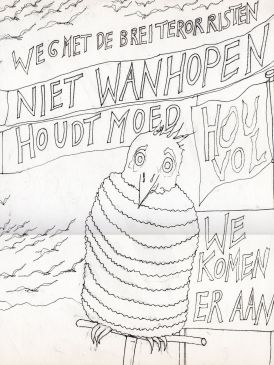 WEG MET DE BREITERORRISTEN
NIET WANHOPEN
HOUDT MOED
HOU
VOL
WE
KOMEN
ER AAN